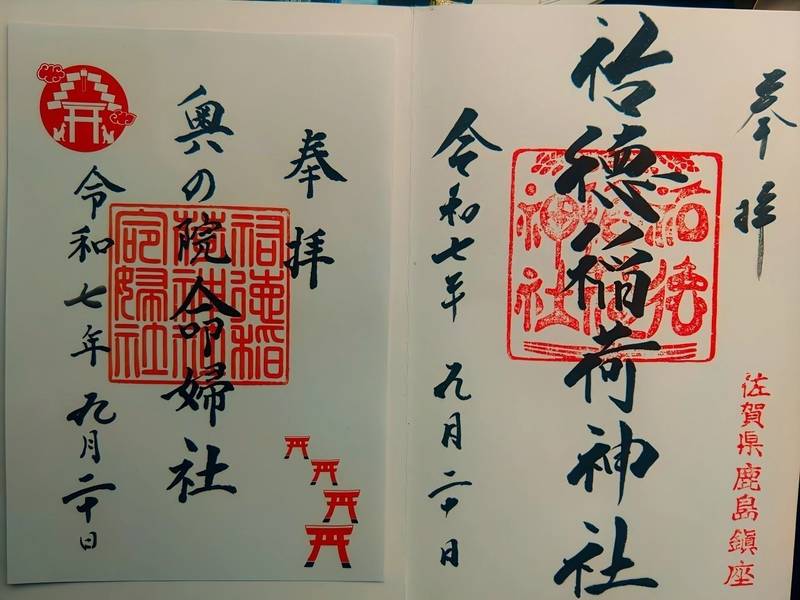 奉拝
佐賀県鹿島鎮座
祐徳稲荷神社
祐徳
神社
令和七年 九月二十日
奉拝
奥の院命婦社
祐徳稲
荷神社
命婦社
令和七年九月二十日